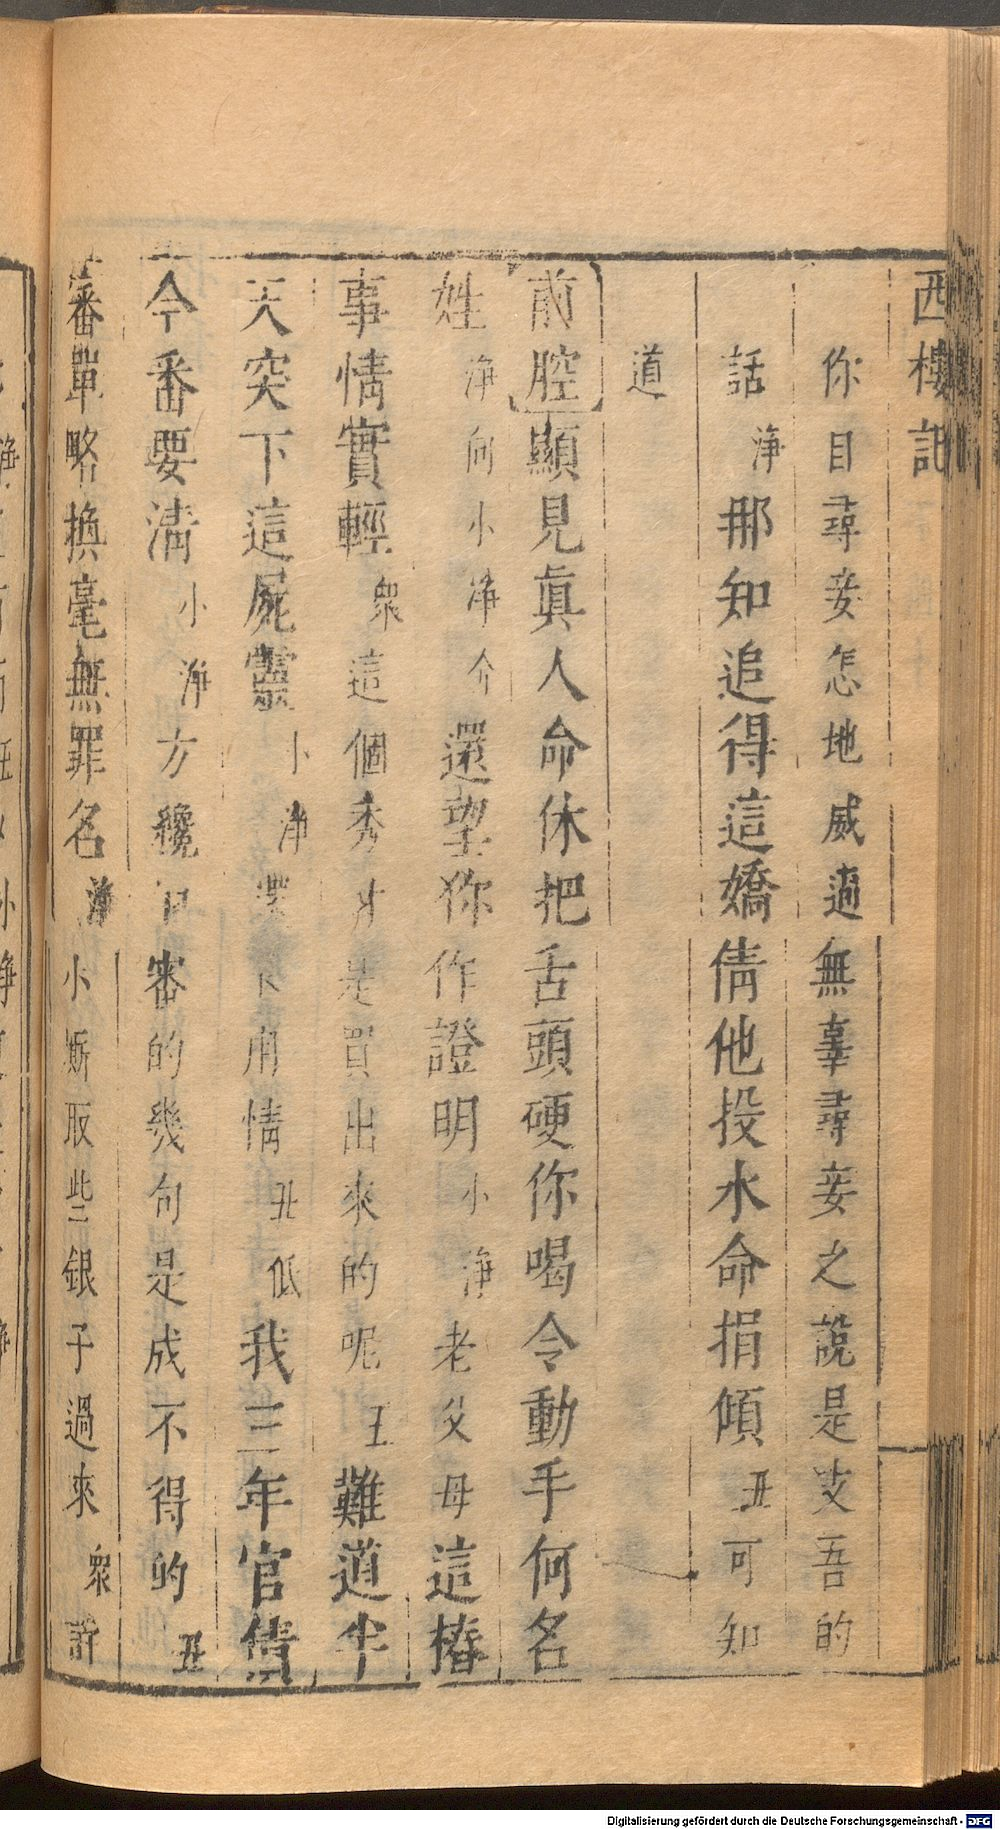 西樓記
你目尋妾怎地威逼無辜尋妾之說是支吾的
話淨那知追得這嬌倩他投水命捐傾丑可知
道
前腔顯見眞人命休把舌頭硬你喝令動手何名
姓淨向小淨介還望你作證明小淨老父母這樁
事情實輕衆這個秀才是買出來的呢王難道半
天突下這屍靈小淨用情丑低我三年官債
今番要清小淨方纔審的幾句是成不得的丑
審單略換毫無罪名淨小厮取些銀子過來衆許
Digitalisierung gefördert durch die Deutsche Forschungsgemeinschaft - DFG